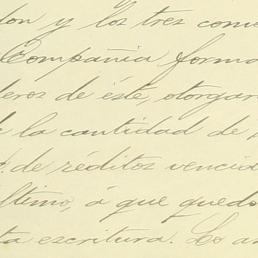 don y los tres como
Compañia forma
deros de éste, otorgar
la cantidad de
de réditos vencid
ultimo, á que quedo
ta escritura. Lo an